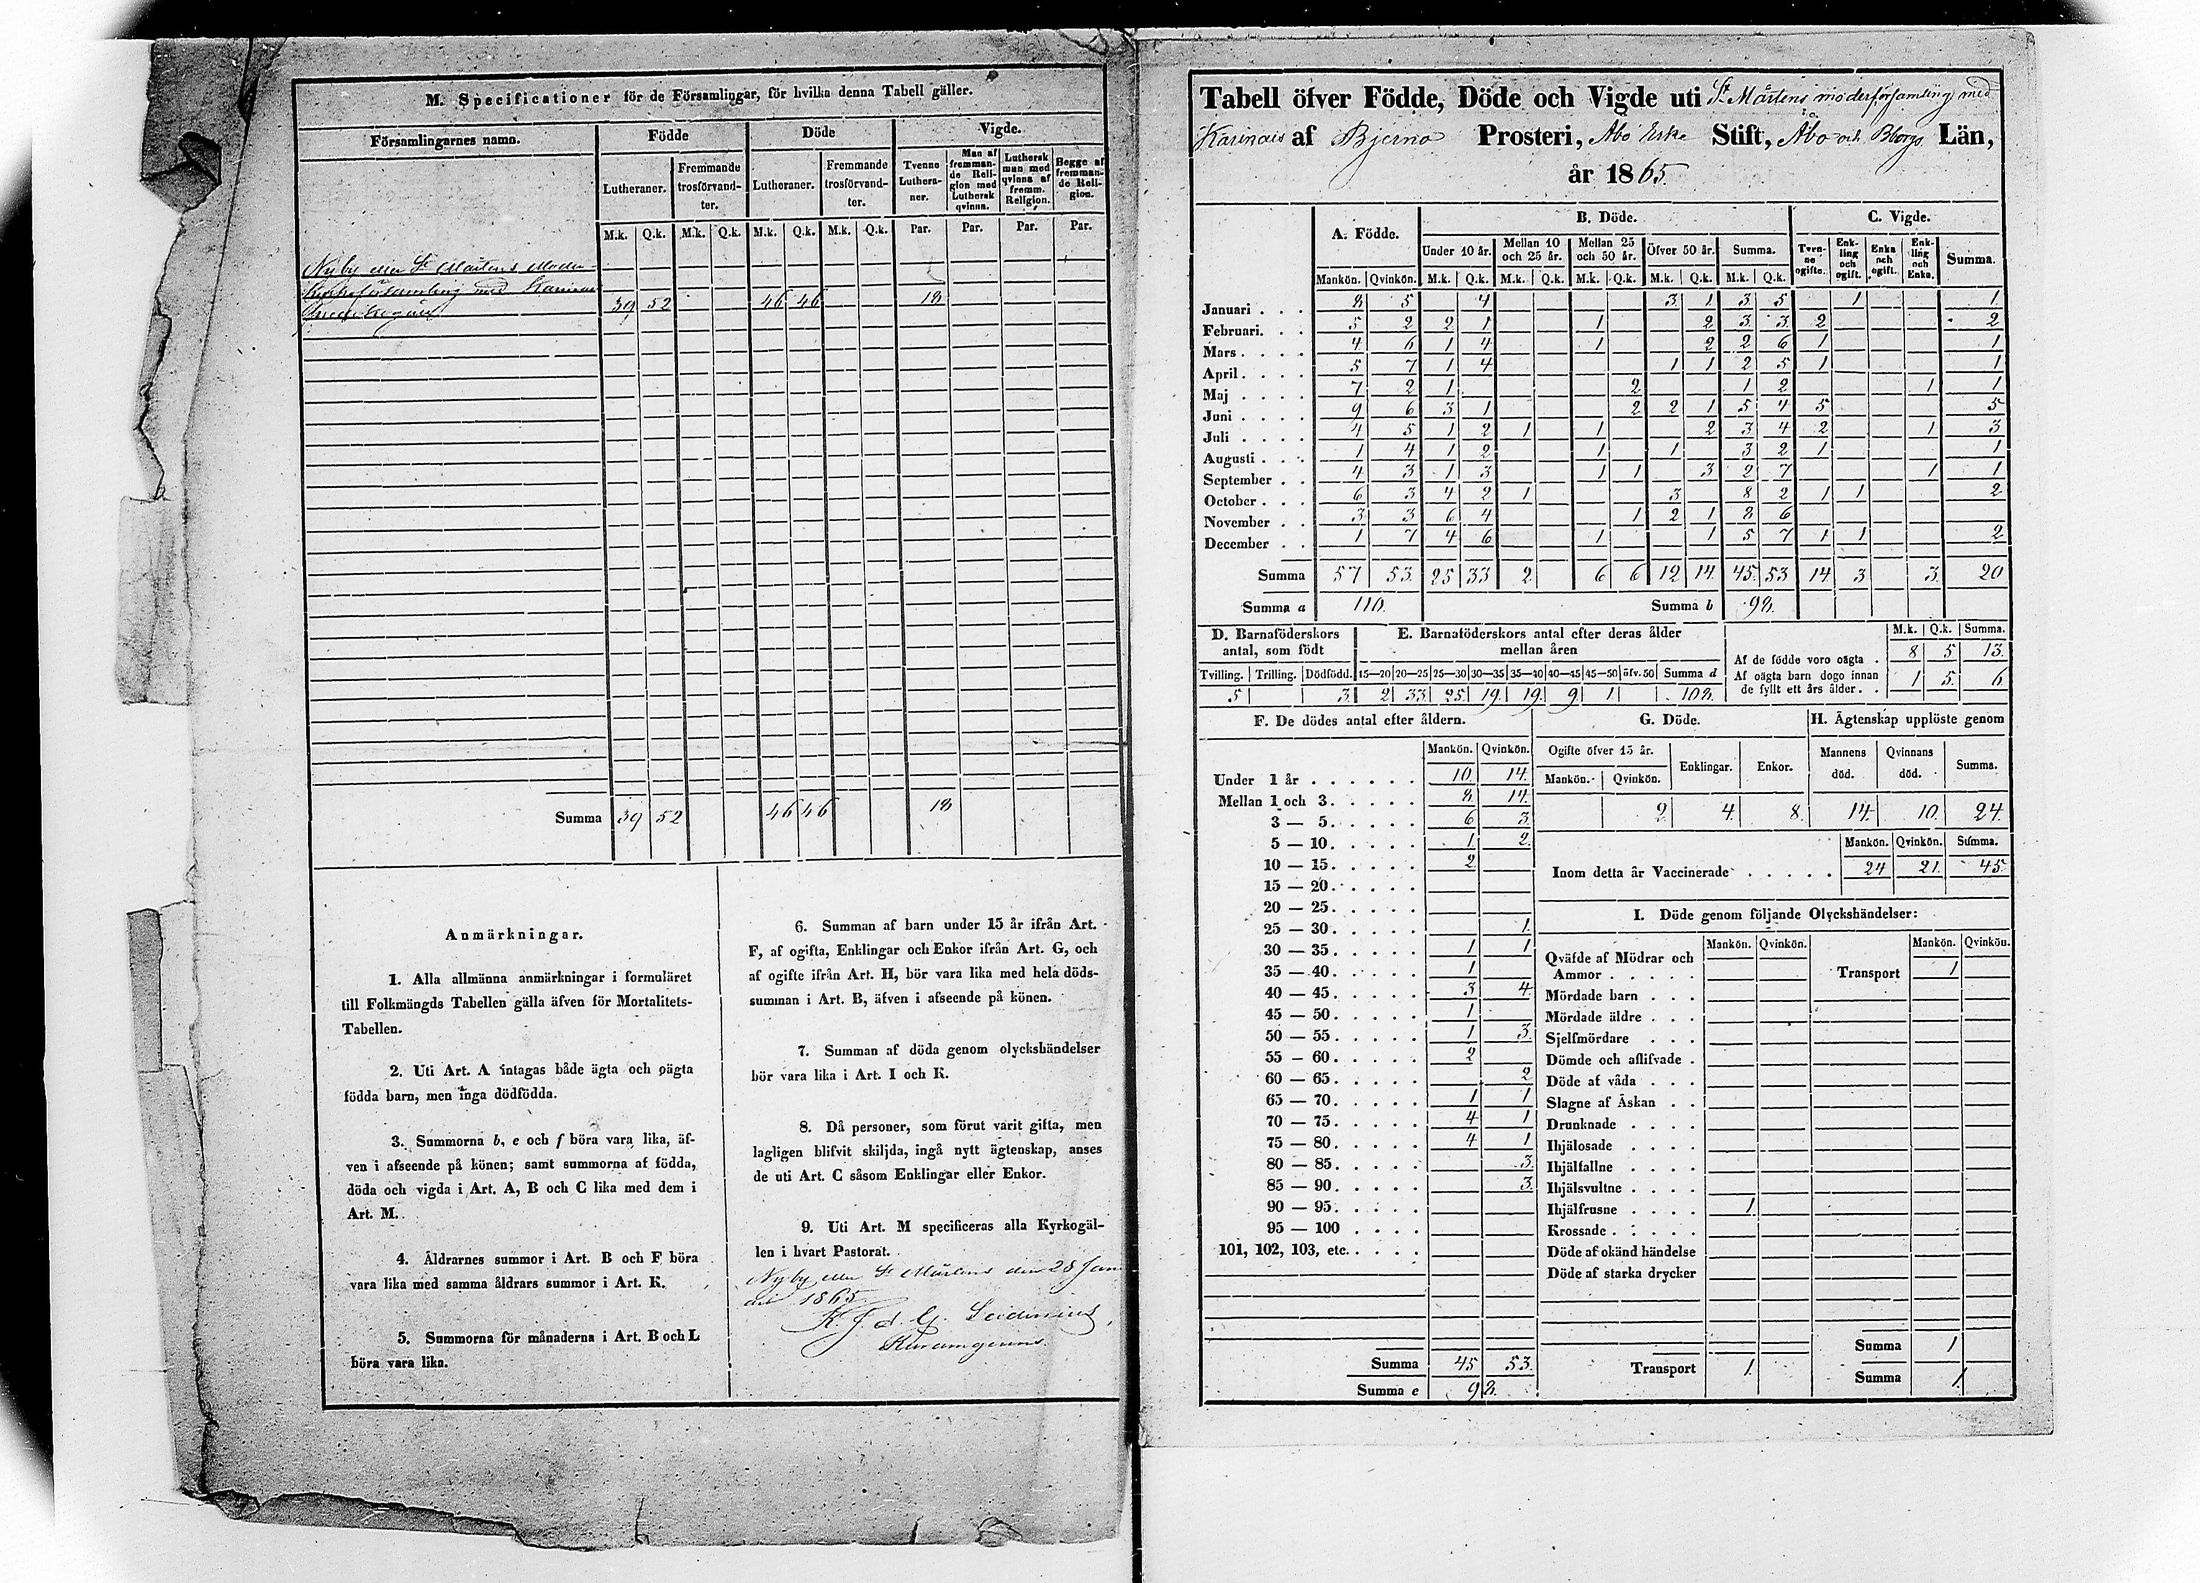 M. Specificationer för de Församlingar, för hvilka denna Tabell gäller.
Församlingarnes namn. Födde Döde Vigde.
Lutheraner. Fremmande trosförvandter. Lutheraner. Fremmande trosförvandter. Tvenne Lutheraner. Man af fremmande Religion med Luthersk qvinna. Luthersk man med qvinna af fremm. Religion. Begge af fremmande Religion.
M.k. Q.k. M.k. Q.k. M.k. Q.k. M.k. Q.k. Par. Par. Par. Par.
Nyby eller St Mårtens Moder
Kyrkoförsamling med Karinais
39 52 46 46 18
Summa 39 52 46 46 18
Anmärkningar.
1. Alla allmänna anmärkningar i formuläret
till Folkmängds Tabellen gälla äfven för Mortalitets-
Tabellen.
2. Uti Art. A intagas både ägta och oägta
födda barn, men inga dödfödda.
3. Summorna b, e och f böra vara lika, äf-
ven i afseende på könen; samt summorna af födda,
döda och vigda i Art. A, B och C lika med dem i
Art. M.
4. Åldrarnes summor i Art. B och F böra
vara lika med samma åldrars summor i Art. K.
5. Summorna för månaderna i Art. B och L
böra vara lika.
6. Summan af barn under 15 år ifrån Art.
F, af ogifta, Enklingar och Enkor ifrån Art. G, och
af ogifte ifrån Art. H, bör vara lika med hela döds-
summan i Art. B, äfven i afseende på könen.
7. Summan af döda genom olyckshändelser
bör vara lika i Art. I och K.
8. Då personer, som förut varit gifta, men
lagligen blifvit skiljda, ingå nytt ägtenskap, anses
de uti Art. C såsom Enklingar eller Enkor.
9. Uti Art. M specificeras alla Kyrkogäl-
len i hvart Pastorat.
Nyby eller St Mårtens den 28 Janu
ari 1865.
Tabell öfver Födde, Döde och Vigde uti St Mårtens moderförsamling med
Karinais af Bjerno Prosteri, Åbo Erke Stift, Åbo och Bborgs Län,
år 1865.
A. Födde. B. Döde. C. Vigde.
Under 10 år. Mellan 10 och 25 år. Mellan 25 och 50 år. Öfver 50 år. Summa. Tvenne ogifte. Enkling och ogift. Enka och ogift. Enkling och Enka. Summa.
Mankön. Qvinkön. M.k. Q.k. M.k. Q.k. M.k. Q.k. M.k. Q.k. M.k. Q.k.
Januari 8 5 4 3 1 3 5 1 1
Februari 5 2 2 1 1 2 3 3 2 2
Mars 4 6 1 4 1 2 2 6 1 1
April 5 7 1 4 1 1 2 5 1 1
Maj 7 2 1 2 1 2 1 1
Juni 9 6 3 1 2 2 1 5 4 5 5
Juli 4 5 1 2 1 1 2 3 4 2 1 3
Augusti 1 4 1 2 1 1 3 2 1 1
September 4 3 1 3 1 1 3 2 7 1 1
October 6 3 4 2 1 3 8 2 1 1 2
November 3 3 6 4 1 2 1 8 6
December 1 7 4 6 1 1 5 7 1 1 2
Summa 57 53 25 33 2 6 6 12 14 45 53 14 3 3 20
Summa a 110. Summa b 98.
D. Barnaföderskors antal, som födt
Tvilling. Trilling. Dödfödd.
5 3
E. Barnaföderskors antal efter deras ålder mellan åren
15—20 20—25 25—30 30—35 35—40 40—45 45—50 öfv. 50 Summa d
2 33 25 19 19 9 1 108.
M.k. Q.k. Summa.
Af de födde voro oägta 8 5 13.
Af oägta barn dogo innan de fyllt ett års ålder 1 5 6
F. De dödes antal efter åldern.
Mankön. Qvinkön.
Under 1 år 10 14
Mellan 1 och 3 8 14
3 — 5 6 3
5 — 10 1 2
10 — 15 2
15 — 20
20 — 25
25 — 30 1
30 — 35 1 1
35 — 40 1
40 — 45 3 4
45 — 50 1
50 — 55 1 3
55 — 60 2
60 — 65 2
65 — 70 1 1
70 — 75 4 1
75 — 80 4 1
80 — 85 3
85 — 90 3
90 — 95
95 — 100
101, 102, 103, etc.
Summa 45 53
Summa e 98.
G. Döde.
Ogifte öfver 15 år. Enklingar. Enkor.
Mankön. Qvinkön.
2 4 8
H. Ägtenskap upplöste genom
Mannens död. Qvinnans död. Summa.
14 10 24
Mankön. Qvinkön. Summa.
Inom detta år Vaccinerade 24 21 45
I. Döde genom följande Olyckshändelser:
Mankön. Qvinkön. Mankön. Qvinkön.
Qväfde af Mödrar och Ammor Transport 1
Mördade barn
Mördade äldre
Sjelfmördare
Dömde och aflifvade
Döde af våda
Slagne af Åskan
Drunknade
Ihjälosade
Ihjälfallne
Ihjälsvultne
Ihjälfrusne 1
Krossade
Döde af okänd händelse
Döde af starka drycker
Summa 1
Transport 1 Summa 1